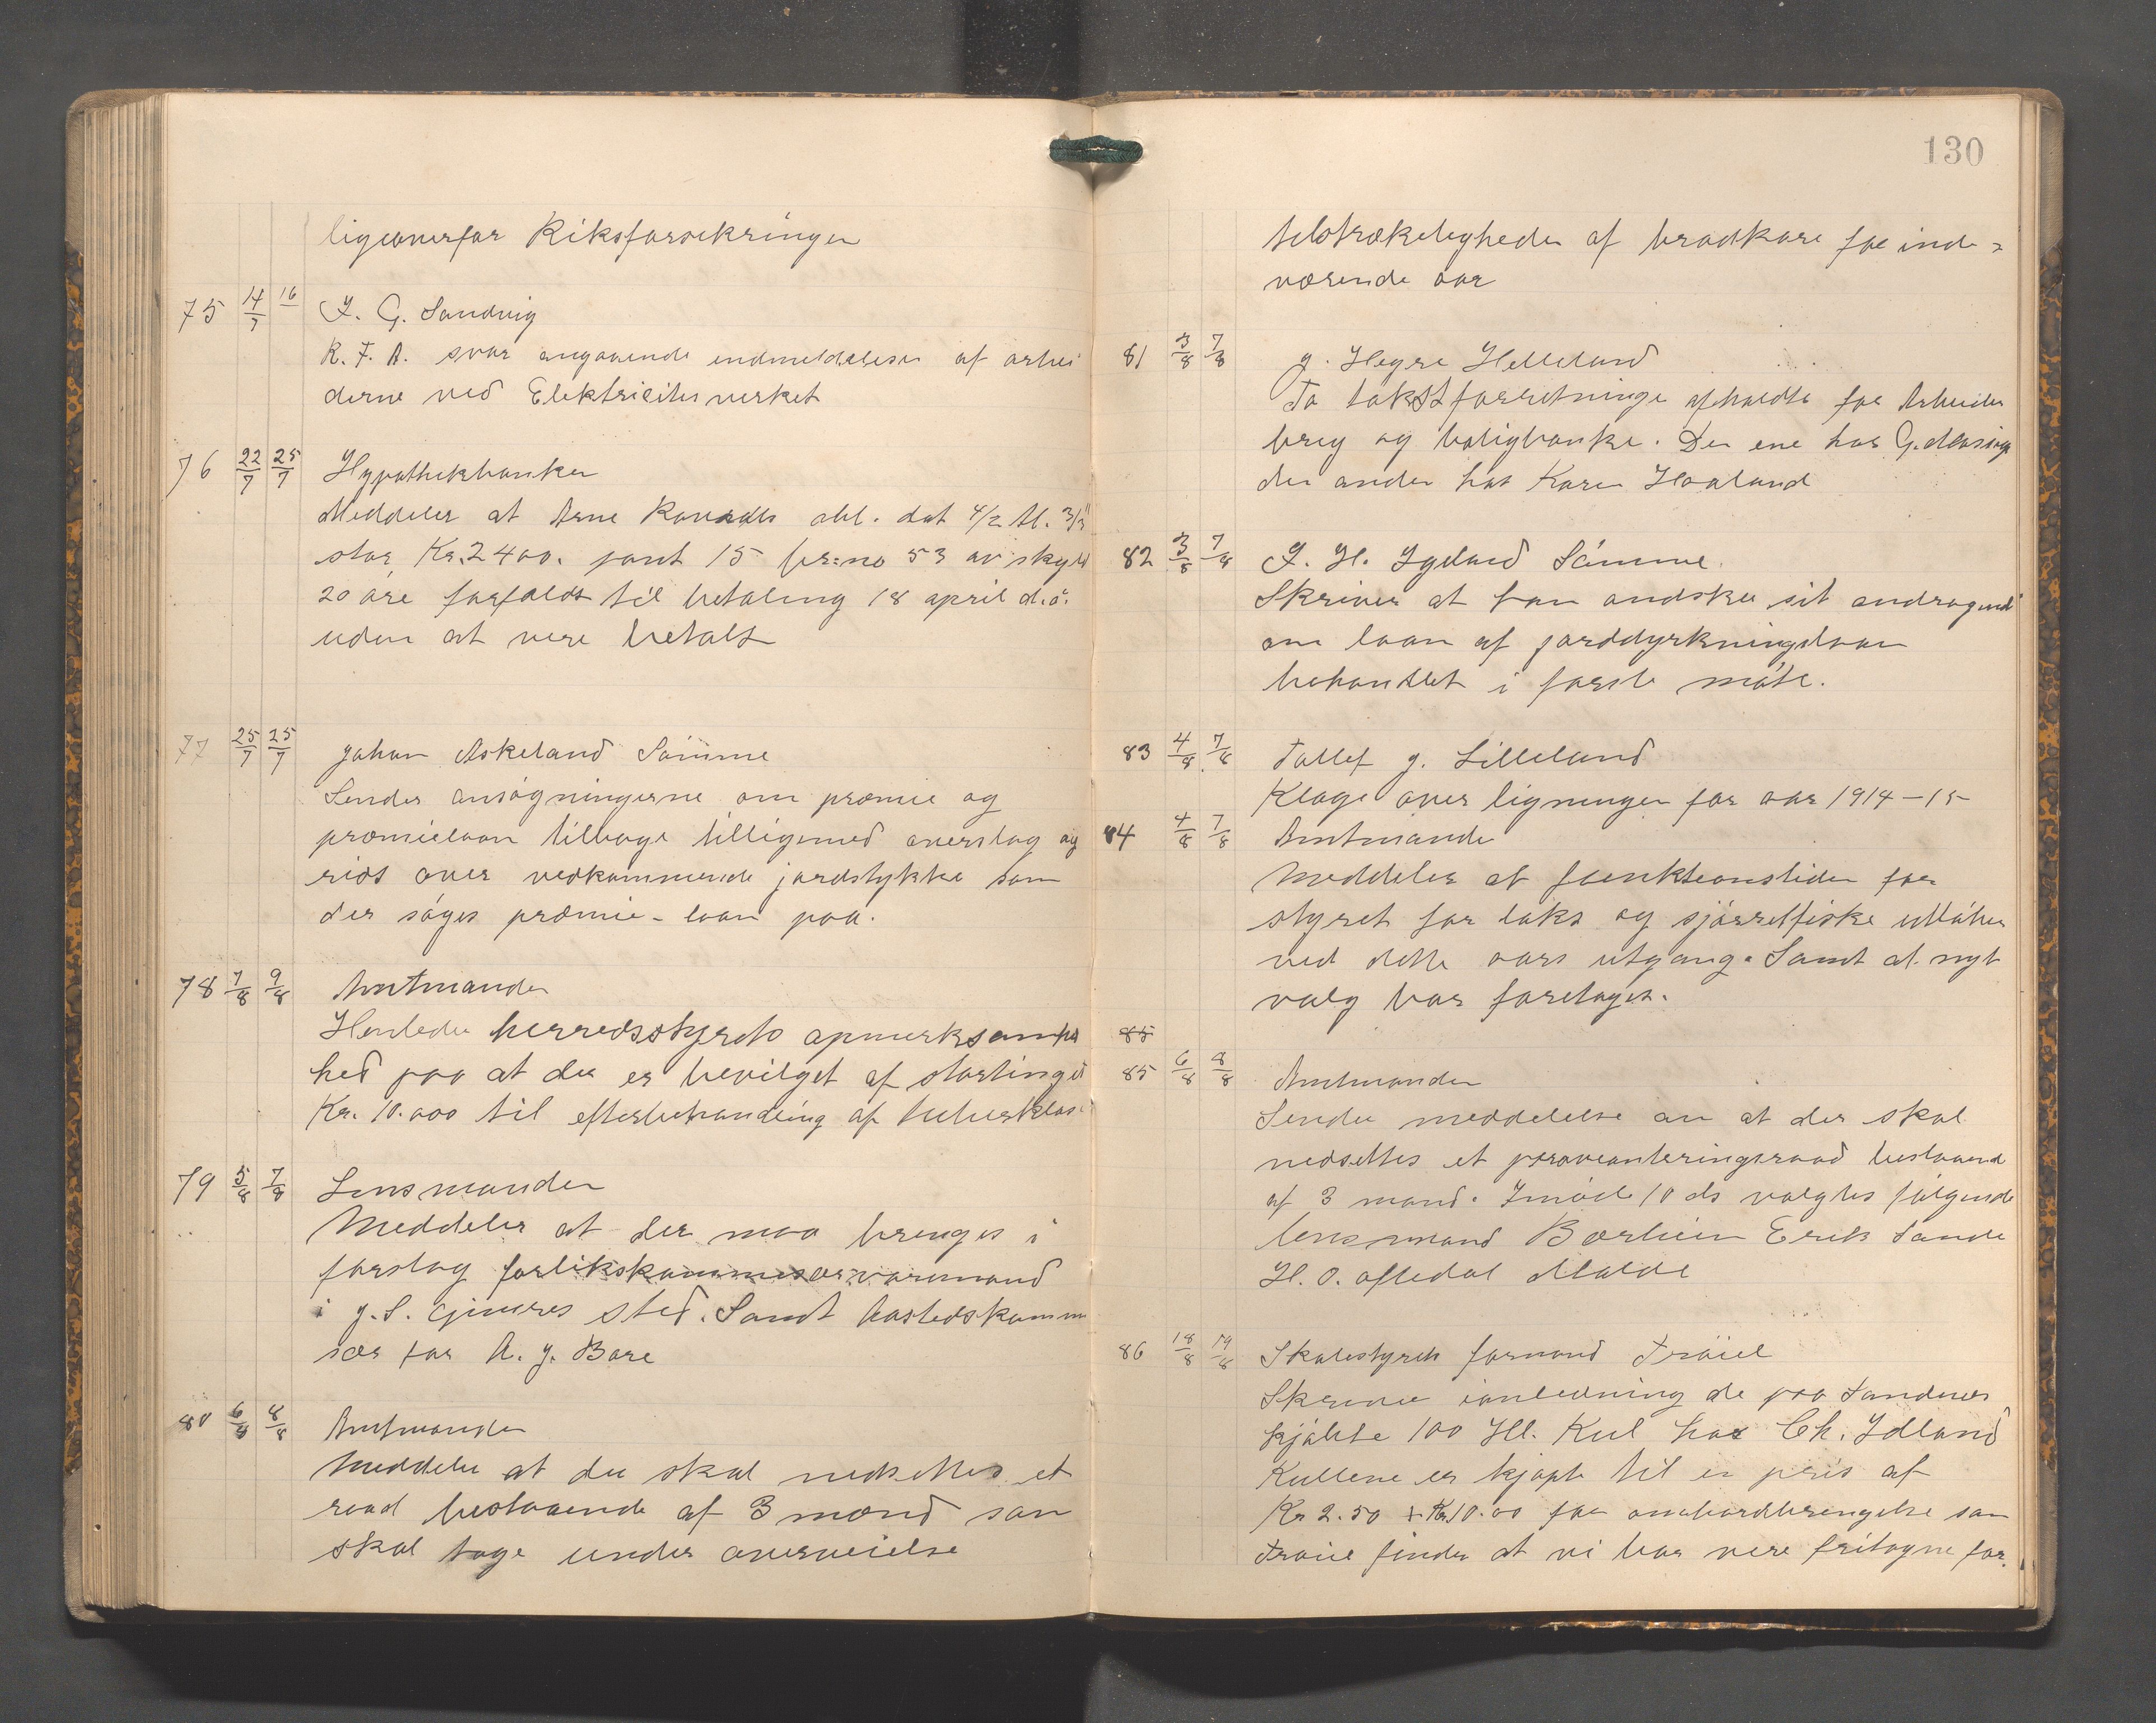 ligeoverfor Riksforsekringen
75 14/7 16 I. G. Sandvig
R. F. A. svar angaaende indmeldelsen af arbei
derne ved Elektricitesverket
76 22/7 25/7 Hypothekbanken
Meddeler at Arne obl. dat 4/2 tl.
stor Kr. 2400. pant 15 br: no 53 av skyld
20 øre forfaldt til betaling 18 april d.å.
uden at vere betalt
77 25/7 25/7 Johan Askeland Sømme
Sender ansøgningerne om præmie og
præmielaan tilbage tilligemed overslag og
rids over vedkommende jordstykke som
der søges præmie-laan paa.
78 7/8 9/8 Amtmanden
Henleder herredsstyrets opmerksom
hed paa at der er bevilget af stortinget
Kr. 10.000 til efterbehandling af tuberklos
79 5/8 7/8 Lensmanden
Meddeler at der maa brenges i
forslag forlikskommisær varamand
i J. S. sted. Samt
sær for A. J. Bore
80 6/8 8/8 Amtmanden
Meddeler at der skal nedsettes et
raad bestaaende af 3 mænd som
skal tage under overveielse
130
tilstrækeligheden af brødkorn for inde=
værende aar
81 3/8 7/8 J. Hegre Helleland
To takstforretninge afholdte for Arbeider
brug og boligbanke. Den ene hos G.
den anden hos Karen Haaland
82 3/8 7/8 I. H. Igeland Sømme.
Skriver at han øndsker sit andragende
om laan af jorddyrkningslaan
behandlet i første møte.
83 4/8 7/8 Tollef J. Lilleland
Klage over ligningen for aar 1914-15
84 4/8 7/8 Amtmande
Meddeler at funktionstiden for
styret for laks og sjørretfiske utløber
ved dette aars utgang. Samt at nyt
valg bør foretages.
85
85 6/8 8/8 Amtmanden
Sender meddelelse om at der skal
nedsettes et provianteringsraad bestaaende
af 3 mand. I møde 10 ds valgtes følgende
lensmand Bærheim Erik Sande
H. O. Aftedal Malde
86 18/8 19/8 Skolestyrets formand Trøiel
Skriver i anledning de paa Sandnes
kjøbte 100 Hl. Kul hos Ch. Idland
Kullene er kjøpt til en pris af
Kr 2.50 + Kr 10.00 for ombordbrengelse som
Trøiel finder at vi bør vere fritagne for.